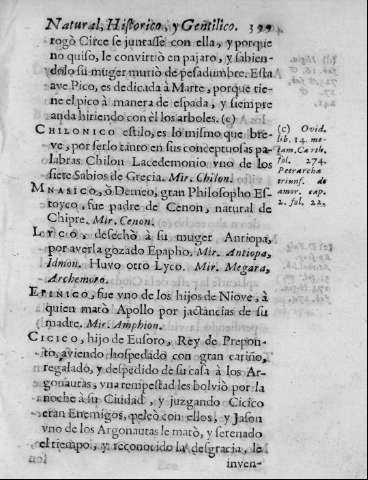 Natural, Historico, y Gentilico. 399
rogò Circe se juntasse con ella, y porque
no quiso, le convirtiò en pajaro, y sabien-
dolo su muger muriò de pesadumbre. Esta
ave Pico, es dedicada à Marte, porque tie-
ne el pico à manera de espada, y siempre
anda hiriendo con èl los arboles. (c)
CHILONICO estilo, es lo mismo que bre-
ve, por serlo tanto en sus conceptuosas pa-
labras Chilon Lacedemonio vno de los
siete Sabios de Grecia. Mir. Chilon.
MNASICO, ò Demeo, gran Philosopho Es-
toyco, fue padre de Cenon, natural de
Chipre. Mir. Cenon.
LYCO, desechò à su muger Antiopa,
por averla gozado Epapho. Mir. Antiopa,
Idmon. Huvo otro Lyco. Mir. Megara,
Archemoro.
EPINICO, fue vno de los hijos de Niove, à
quien matò Apollo por jactancias de su
madre. Mir. Amphion.
CICICO, hijo de Eusoro, Rey de Prepon-
to, aviendo hospedado con gran cariño,
regalado, y despedido de su casa à los Ar-
gonautas, vna tempestad les bolviò por la
noche à su Ciudad, y juzgando Cicico
eran Enemigos, peleò con ellos, y Jason
vno de los Argonautas le matò, y serenado
el tiempo, y reconocido la desgracia, le
inven-
(c) Ovid.
lib. 14. me-
tam. Carth.
fol. 274.
Petrarcha
triunf. de
amor. cap.
2. fol. 22.